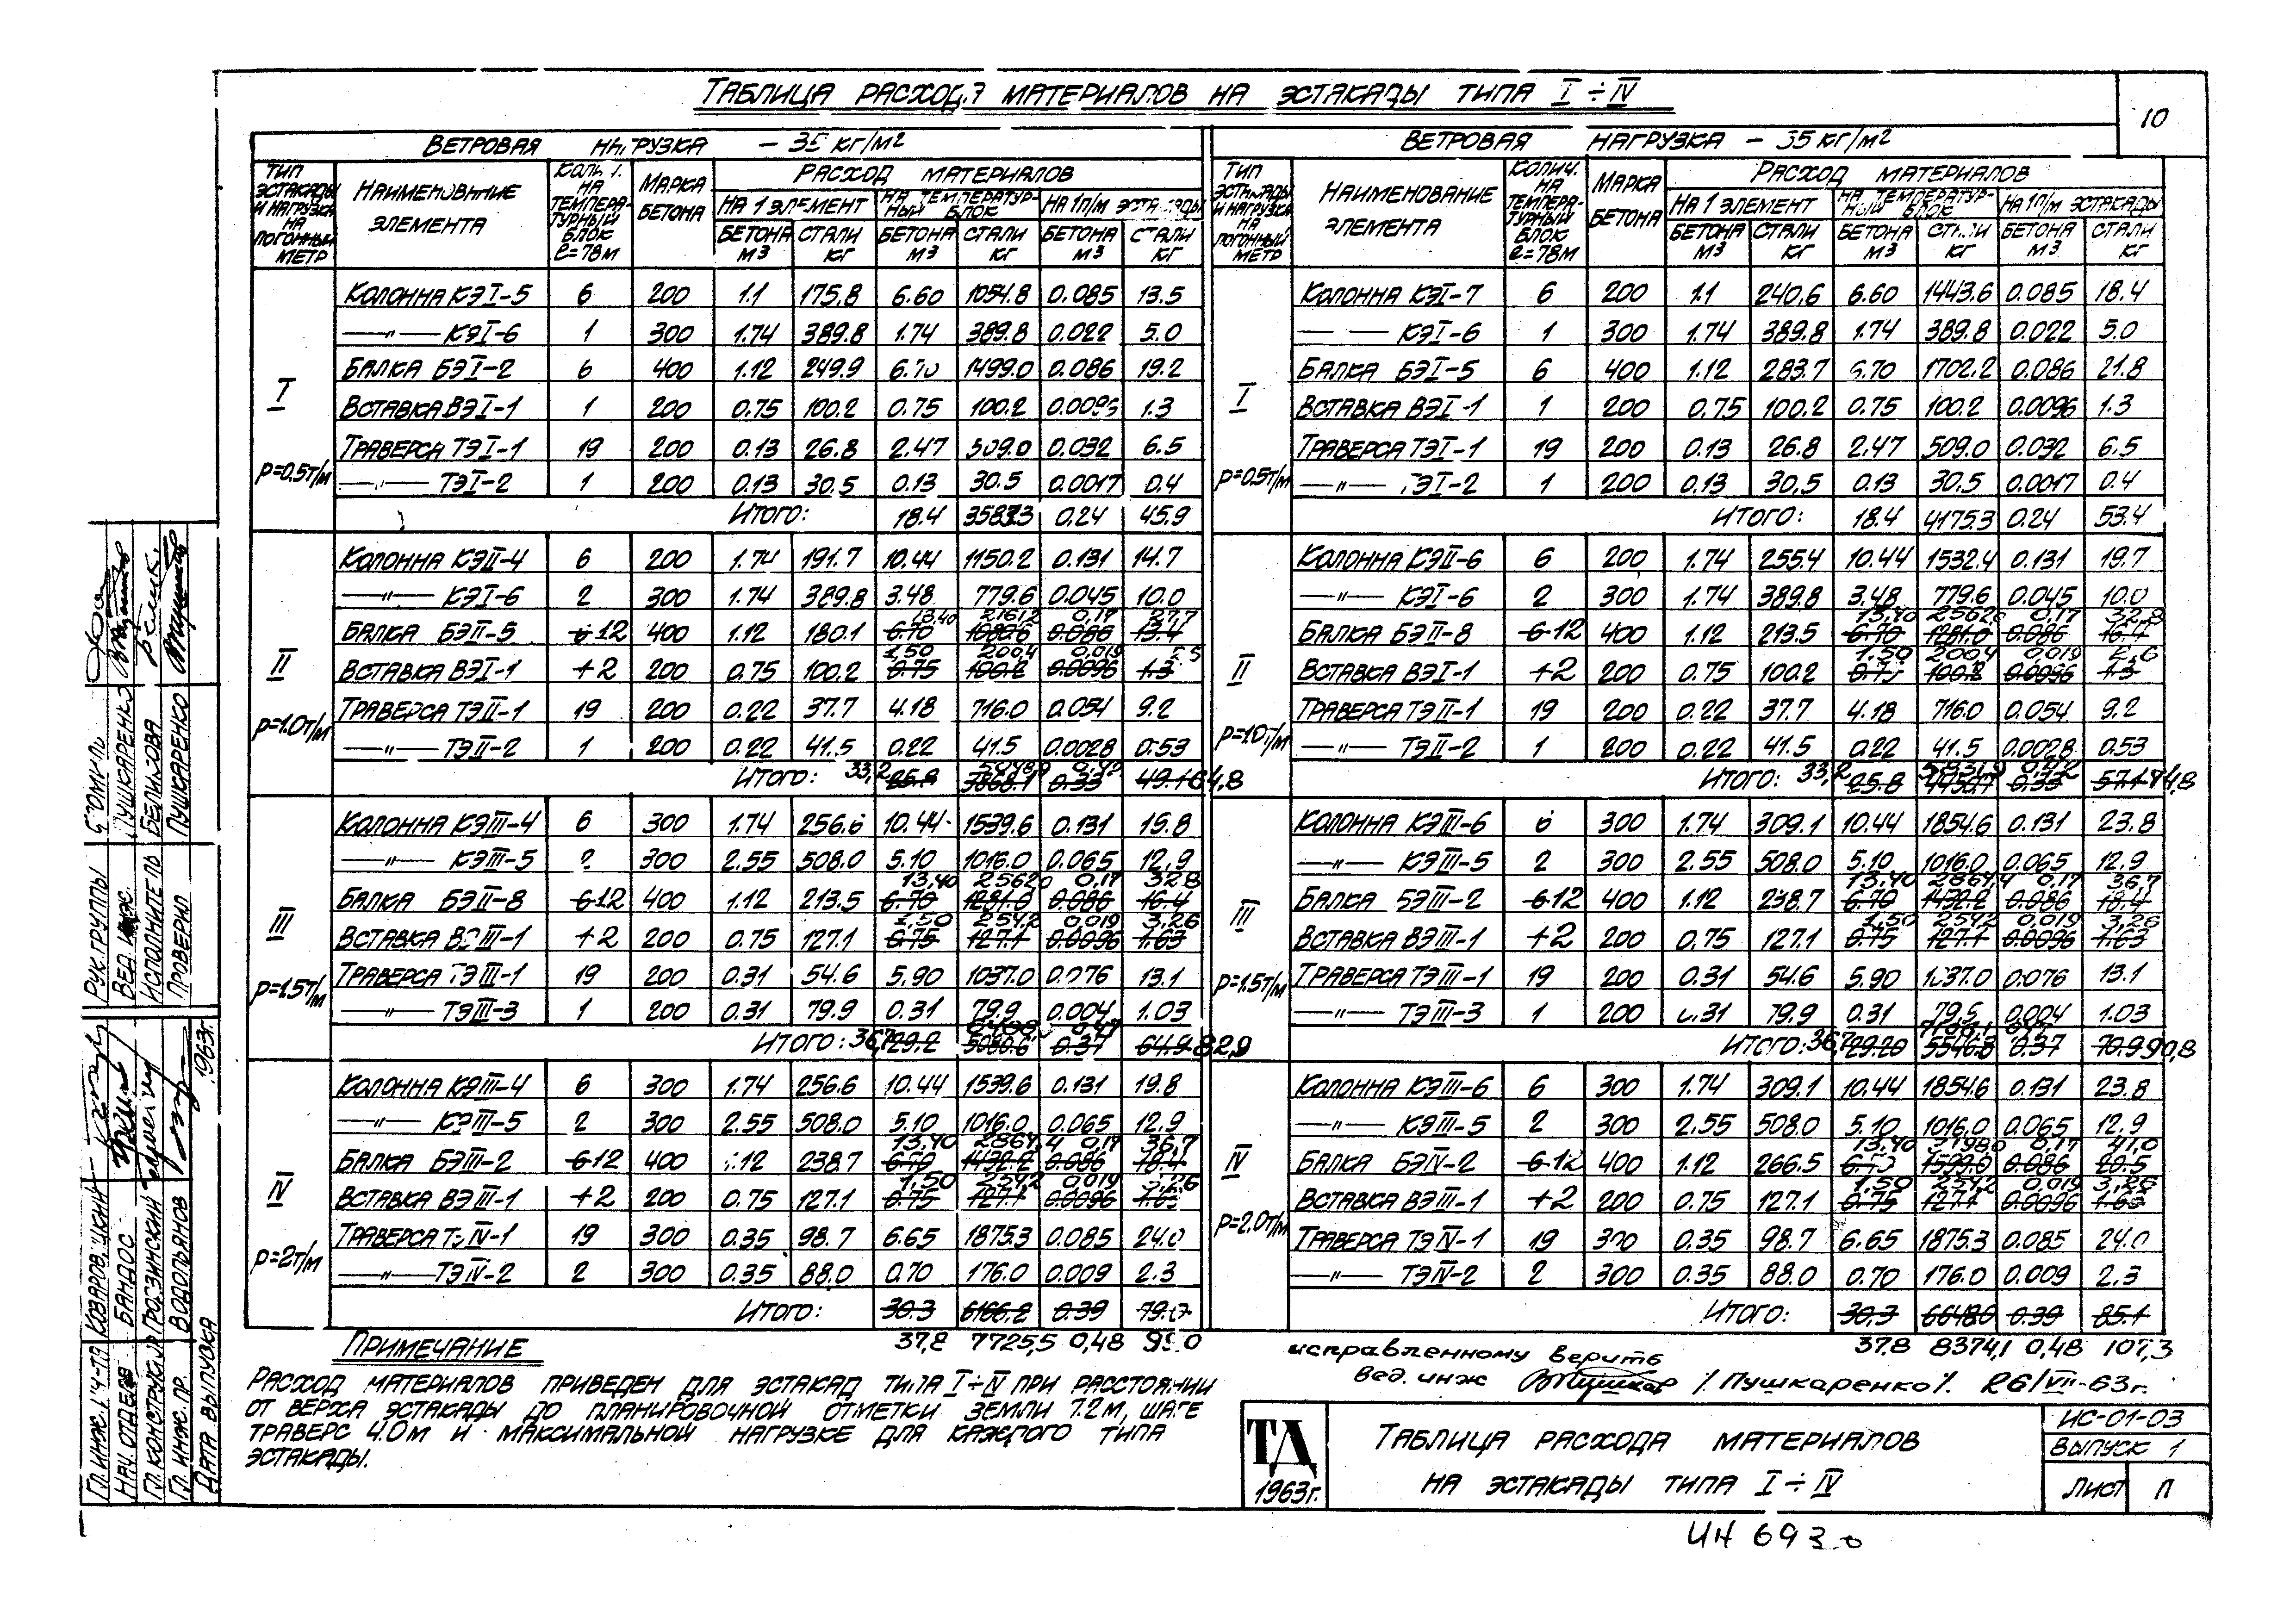 Таблица расхода материалов на эстакады типа I ÷ IV
10
Ветровая нагрузка – 35 кг/м²
Тип эстакады и нагрузка на погонный метр | Наименование элемента | на температурный блок ℓ=78м | Марка бетона | Расход материалов
На 1 элемент | На температурный блок | На 1п/м эстакады
Бетона м3 | Стали кг | Бетона м3 | Стали кг | Бетона м3 | Стали кг
I p=0.5т/м
Колонна КЭI-5 6 200 1.1 175.8 6.60 1054.8 0.085 13.5
—"— КЭI-6 1 300 1.74 389.8 1.74 389.8 0.022 5.0
Балка БЭI-2 6 400 1.12 249.9 6.70 1499.0 0.086 19.2
Вставка ВЭI-1 1 200 0.75 100.2 0.75 100.2 0.0096 1.3
Траверса ТЭI-1 19 200 0.13 26.8 2.47 509.0 0.032 6.5
—"— ТЭI-2 1 200 0.13 30.5 0.13 30.5 0.0017 0.4
Итого: 18.4 3583.3 0.24 45.9
II p=1.0т/м
Колонна КЭII-4 6 200 1.74 191.7 10.44 1150.2 0.131 14.7
—"— КЭI-6 2 300 1.74 389.8 3.48 779.6 0.045 10.0
13,40 2161,2 0,17 27,7
Балка БЭII-5 6 12 400 1.12 180.1 6.70 1080.6 0.086 13.4
1,50 200,4 0,019
Вставка ВЭI-1 1 2 200 0.75 100.2 0.75 100.2 0.0096 1.3
Траверса ТЭII-1 19 200 0.22 37.7 4.18 716.0 0.054 9.2
—"— ТЭII-2 1 200 0.22 41.5 0.22 41.5 0.0028 0.53
5048,9 0,42
Итого: 33,2 25.8 3868.1 0.33 49.1 64,8
III p=1.5т/м
Колонна КЭIII-4 6 300 1.74 256.6 10.44 1539.6 0.131 19.8
—"— КЭIII-5 2 300 2.55 508.0 5.10 1016.0 0.065 12.9
13,40 2562,0 0,17 32,8
Балка БЭII-8 6 12 400 1.12 213.5 6.70 1281.0 0.086 16.4
1,50 254,2 0,019 3,26
Вставка ВЭIII-1 1 2 200 0.75 127.1 0.75 127.1 0.0096 1.63
Траверса ТЭIII-1 19 200 0.31 54.6 5.90 1037.0 0.076 13.1
—"— ТЭIII-3 1 200 0.31 79.9 0.31 79.9 0.004 1.03
0,47
Итого: 36,7 29.2 5080.6 0.37 64.9 82,9
IV p=2т/м
Колонна КЭIII-4 6 300 1.74 256.6 10.44 1539.6 0.131 19.8
—"— КЭIII-5 2 300 2.55 508.0 5.10 1016.0 0.065 12.9
13,40 2864,4 0,17 36,7
Балка БЭIII-2 6 12 400 1.12 238.7 6.70 1432.2 0.086 18.4
1,50 254,2 0,019 3,26
Вставка ВЭIII-1 1 2 200 0.75 127.1 0.75 127.1 0.0096 1.63
Траверса ТЭIV-1 19 300 0.35 98.7 6.65 1875.3 0.085 24.0
—"— ТЭIV-2 2 300 0.35 88.0 0.70 176.0 0.009 2.3
Итого: 30.3 6166.2 0.39 79.0
37,8 7725,5 0,48 99.0
Ветровая нагрузка – 55 кг/м²
Тип эстакады и нагрузка на погонный метр | Наименование элемента | Колич. на температурный блок ℓ=78м | Марка бетона | Расход материалов
На 1 элемент | На температурный блок | На 1п/м эстакады
Бетона м3 | Стали кг | Бетона м3 | Стали кг | Бетона м3 | Стали кг
I p=0.5т/м
Колонна КЭI-7 6 200 1.1 240.6 6.60 1443.6 0.085 18.4
—"— КЭI-6 1 300 1.74 389.8 1.74 389.8 0.022 5.0
Балка БЭI-5 6 400 1.12 283.7 6.70 1702.2 0.086 21.8
Вставка ВЭI-1 1 200 0.75 100.2 0.75 100.2 0.0096 1.3
Траверса ТЭI-1 19 200 0.13 26.8 2.47 509.0 0.032 6.5
—"— ТЭI-2 1 200 0.13 30.5 0.13 30.5 0.0017 0.4
Итого: 18.4 4175.3 0.24 53.4
II p=1.0т/м
Колонна КЭII-6 6 200 1.74 255.4 10.44 1532.4 0.131 19.7
—"— КЭI-6 2 300 1.74 389.8 3.48 779.6 0.045 10.0
13,40 2562,0 0,17 32,8
Балка БЭII-8 6 12 400 1.12 213.5 6.70 1281.0 0.086 16.4
1,50 200,4 0,019
Вставка ВЭI-1 1 2 200 0.75 100.2 0.75 100.2 0.0096 1.3
Траверса ТЭII-1 19 200 0.22 37.7 4.18 716.0 0.054 9.2
—"— ТЭII-2 1 200 0.22 41.5 0.22 41.5 0.0028 0.53
0,42
Итого: 33,2 25.8 4450.7 0.33 57.1
III p=1.5т/м
Колонна КЭIII-6 6 300 1.74 309.1 10.44 1854.6 0.131 23.8
—"— КЭIII-5 2 300 2.55 508.0 5.10 1016.0 0.065 12.9
13,40 2864,4 0,17 36,7
Балка БЭIII-2 6 12 400 1.12 238.7 6.70 1432.2 0.086 18.4
1,50 254,2 0,019 3,26
Вставка ВЭIII-1 1 2 200 0.75 127.1 0.75 127.1 0.0096 1.63
Траверса ТЭIII-1 19 200 0.31 54.6 5.90 1037.0 0.076 13.1
—"— ТЭIII-3 1 200 0.31 79.9 0.31 79.9 0.004 1.03
Итого: 36,7 29.20 5546.8 0.37 70.9 90,8
IV p=2.0т/м
Колонна КЭIII-6 6 300 1.74 309.1 10.44 1854.6 0.131 23.8
—"— КЭIII-5 2 300 2.55 508.0 5.10 1016.0 0.065 12.9
13,40 3198,0 0,17 41,0
Балка БЭIV-2 6 12 400 1.12 266.5 6.70 1599.0 0.086 20.5
1,50 254,2 0,019 3,26
Вставка ВЭIII-1 1 2 200 0.75 127.1 0.75 127.1 0.0096 1.63
Траверса ТЭIV-1 19 300 0.35 98.7 6.65 1875.3 0.085 24.0
—"— ТЭIV-2 2 300 0.35 88.0 0.70 176.0 0.009 2.3
Итого: 30.3 6648.0 0.39 85.1
37.8 8374,1 0,48 107,3
Примечание
Расход материалов приведен для эстакад типа I÷IV при расстоянии
от верха эстакады до планировочной отметки земли 7.2м, шаге
траверс 4.0м и максимальной нагрузке для каждого типа
эстакады.
исправленному верить
вед. инж /Пушкаренко/. 26/VII-63г.
ТД
1963г.
Таблица расхода материалов
на эстакады типа I ÷ IV
ИС-01-03
Выпуск 1
Лист П
Рук. группы
Вед. инж. Пушкаренко
Исполнитель Беликова
Проверил Пушкаренко
Нач. отдела Бандос
Гл. конструктор
Гл. инж. пр. Водольянов
Дата выпуска 1963г.